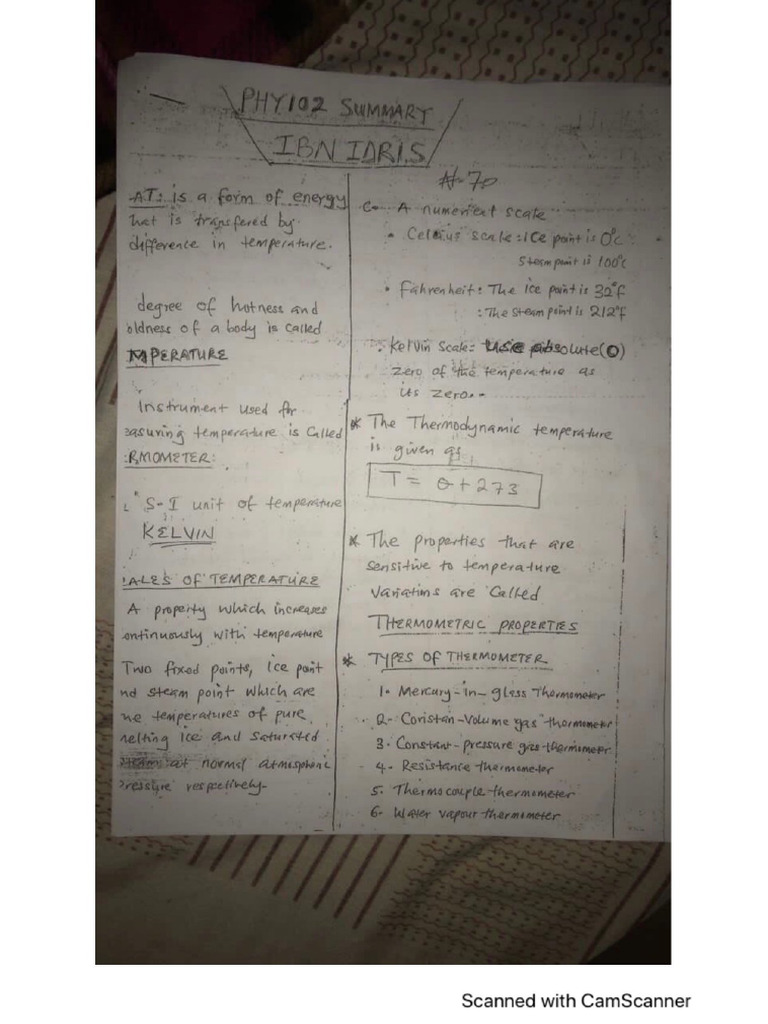 PHY102 SUMMARY
IBN IDRIS
₦-70
AT: is a form of energy
hat is transfered by
difference in temperature.
degree of hotness and
oldness of a body is called
MPERATURE
Instrument used for
easuring temperature is Called
RMOMETER:
S-I unit of temperature
KELVIN
ALES OF TEMPERATURE
A property which increases
ontinuously with temperature
Two fixed points, ice point
nd steam point which are
he temperatures of pure
melting Ice and Saturated
steam at normal atmospheric
pressure respectively.
C. A numerical scale
• Celcius scale: ice point is 0°c
Steam point is 100°c
• Fahrenheit: The ice point is 32°f
: The steam point is 212°f
• Kelvin scale: Use absolute (0)
zero of the temperature as
its zero..
* The Thermodynamic temperature
is given as
T = θ + 273
* The properties that are
sensitive to temperature
Variations are Called
THERMOMETRIC PROPERTIES
* TYPES OF THERMOMETER
1. Mercury-in-glass Thermometer
2. Constan-Volume gas thermometer
3. Constant-pressure gas thermometer
4. Resistance thermometer
5. Thermocouple thermometer
6. Water vapour thermometer
Scanned with CamScanner